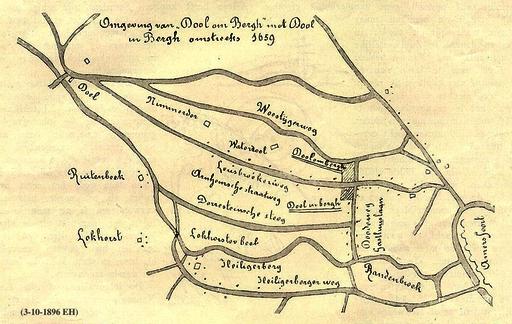 Omgeving van "Dool om Bergh" met Dool
in Bergh omstreeks 1659
Dool
Nimmerdor
Woestijgerweg
Waterdool
Doolombergh
Leusbroekerweg
Arnhemsche straatweg
Dool inbergh
Doornsteinsche steeg
Ruitenbeek
Lokhorst
Lokhorster beek
Heiligerberg
Heiligerberger weg
Randenbroek
Doodeweg
Gasthuislaan
Amersfoort
(3-10-1896 EH)